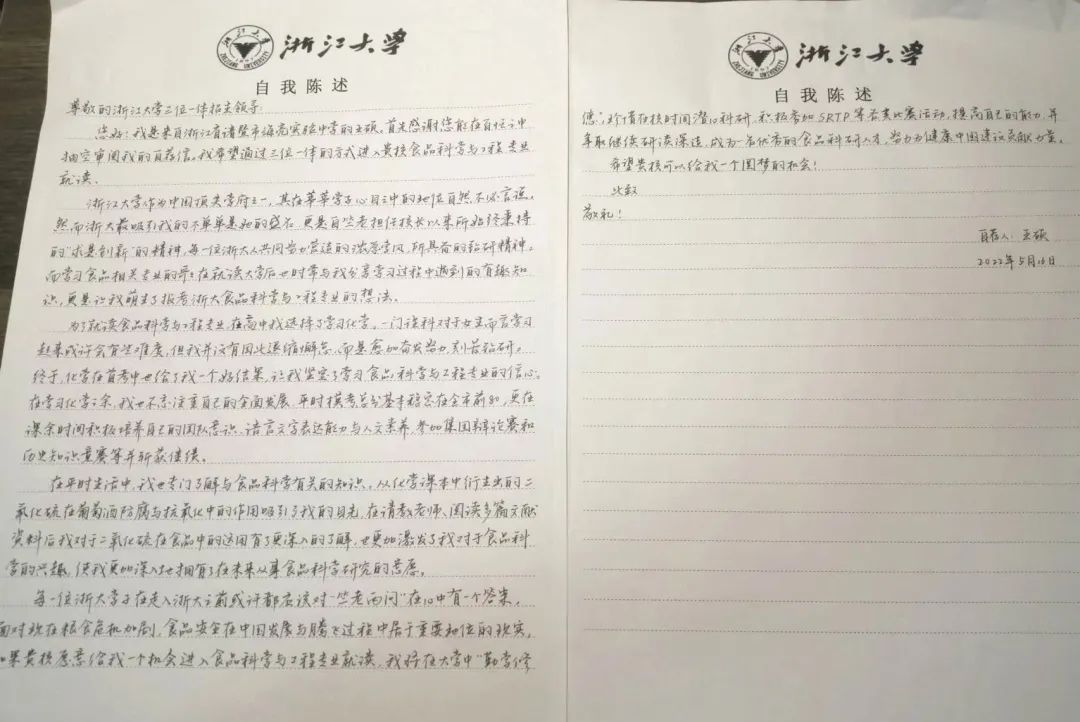 浙江大学
自我陈述
尊敬的浙江大学三位一体招生领导:
您好!我是来自浙江省诸暨市海亮实验中学的王硕,首先感谢您能在百忙之中
抽空审阅我的自荐信。我希望通过三位一体的方式进入贵校食品科学与工程专业
就读。
浙江大学作为中国顶尖学府之一,其在莘莘学子心目之中的地位自然不必言谈,
然而浙大最吸引我的不单单是她的盛名,更是自竺老担任校长以来所始终秉持
的"求是创新"的精神,每一位浙大人共同努力营造的浓厚学风,所具备的钻研精神。
而学习食品相关专业的哥哥在就读大学后也时常与我分享学习过程中遇到的有趣知
识,更是让我萌生了报考浙大食品科学与工程专业的想法。
为了就读食品科学与工程专业,在高中我选择了学习化学。一门该科对于女生而言学习
起来或许会有些难度,但我并没有因此退缩懈怠,而是愈加奋发努力,刻苦钻研。
终于,化学在首考中也给了我一个好结果,让我坚定了学习食品科学与工程专业的信心。
在学习化学之余,我也不忘注重自己的全面发展,平时模考总分基本稳定在全市前80,更在
课余时间积极培养自己的团队意识、语言文字表达能力与人文素养,参加集团辩论赛和
历史知识竞赛等并斩获佳绩。
在平时生活中,我也专门了解与食品科学有关的知识。从化学课本中衍生出的二
氧化硫在葡萄酒防腐与抗氧化中的作用吸引了我的目光,在请教老师、阅读多篇文献
资料后我对于二氧化硫在食品中的运用有了更深入的了解,也更加激发了我对于食品科
学的兴趣,使我更加深入地拥有了在未来从事食品科学研究的意愿。
每一位浙大学子在走入浙大之前或许都应该对"竺老两问"在心中有一个答案。
面对现在粮食危机加剧,食品安全在中国发展与腾飞过程中居于重要地位的现实,
如果贵校愿意给我一个机会进入食品科学与工程专业就读,我将在大学中"勤学修
浙江大学
自我陈述
德",珍惜在校时间潜心科研,积极参加SRTP等各类比赛活动,提高自己的能力,并
争取继续研读深造,成为一名优秀的食品科研人才,努力为健康中国建设贡献力量。
希望贵校可以给我一个圆梦的机会!
此致
敬礼!
自荐人:王硕
2022年5月16日